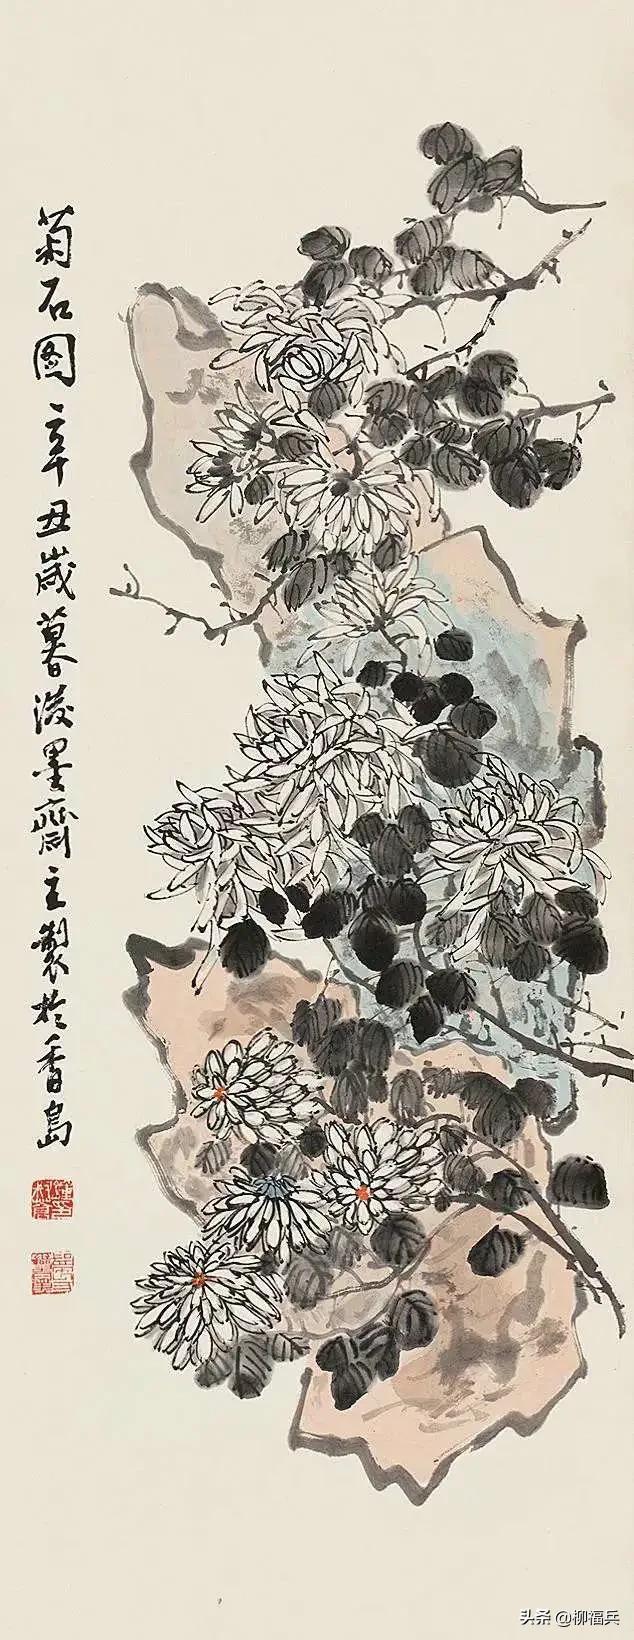 菊石图辛丑歲暮墨齋主製於香島
头条 @柳福兵